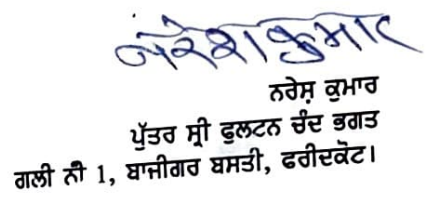 ਨਰੇਸ਼ ਕੁਮਾਰ
ਨਰੇਸ਼ ਕੁਮਾਰ
ਪੁੱਤਰ ਸ੍ਰੀ ਫੁਲਟਨ ਚੰਦ ਭਗਤ
ਗਲੀ ਨੰ 1, ਬਾਜੀਗਰ ਬਸਤੀ, ਫਰੀਦਕੋਟ।